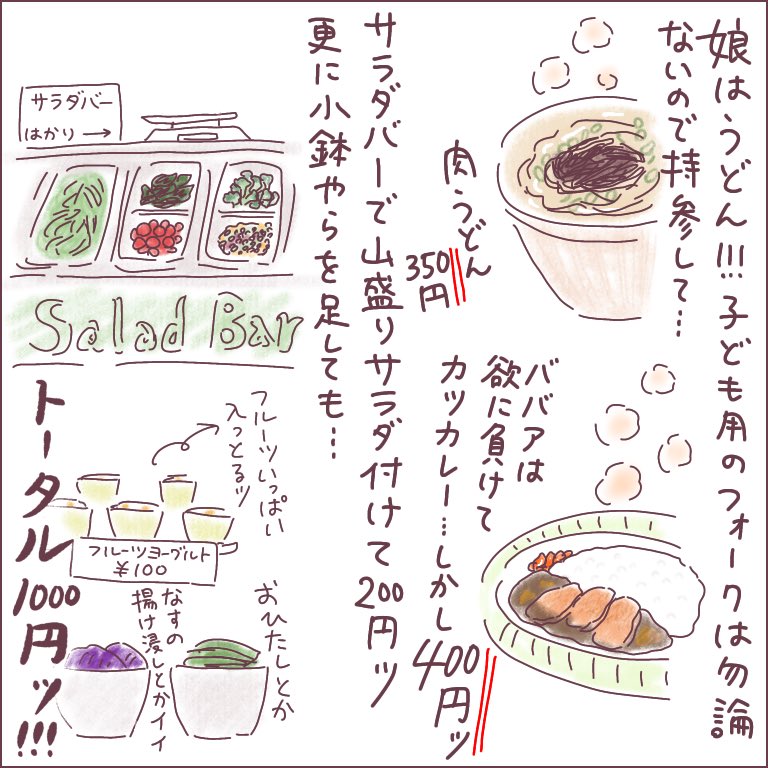 娘はうどん!!!子ども用のフォークは勿論
ないので持参して…
肉うどん
350円
ババアは
欲に負けて
カツカレー…しかし
400円ッ
サラダバーで山盛りサラダ付けて200円ッ
更に小鉢やらを足しても…
サラダバー
はかり→
Salad Bar
フルーツいっぱい
入っとるッ
フルーツヨーグルト
¥100
おひたしとか
なすの
揚げ浸しとかイイ
トータル1000円ッ!!!